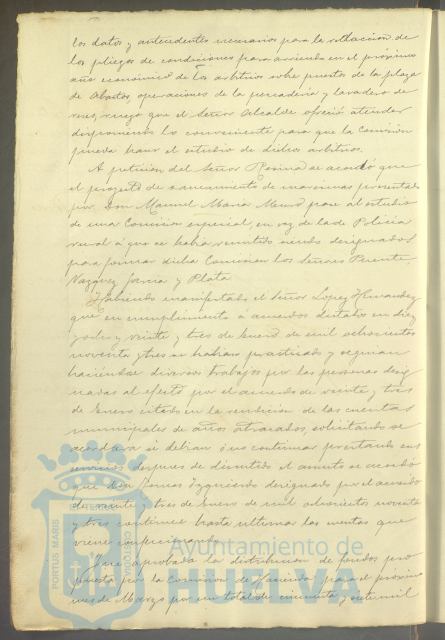 los datos y antecedentes necesarios para la redaccion de
los pliegos de condiciones para arriendo en el próximo
año economico de los arbitrios sobre puestos de la plaza
de Abastos, operaciones de la pescaderia y lavadero de
reses, ruego que el Señor Alcalde ofreció atender
disponiendo lo conveniente para que la Comision
pueda hacer el estudio de dichos arbitrios.
A peticion del Señor Rosina se acordó que
el proyecto de saneamiento de marismas presentado
por Don Manuel Maria pase al estudio
de una Comision especial, en vez de la de Policia
rural á que se habia remitido siendo designados
para formar dicha Comision los Señores
Vazquez Garcia y Plata.
Habiendo manifestado el Señor Lopez Hernandez
que en cumplimiento á acuerdos dictados en diez
y ocho y veinte y tres de Enero de mil ochocientos
noventa y tres se habian practicado y seguian
haciendose diversos trabajos por las personas desig
nadas al efecto por el acuerdo de veinte y tres
de Enero citado en la rendicion de las cuentas
municipales de años atrasados, solicitando se
acordara si debian ó no continuar prestando sus
servicios despues de discutido el asunto se acordó
que Don Tomas Izquierdo designado por el acuerdo
de veinte y tres de Enero de mil ochocientos noventa
y tres continue hasta ultimar las cuentas que
viene confeccionando.
Fué aprobada la distribucion de fondos pro
puesta por la Comision de Hacienda para el próximo
mes de Marzo por un total de cincuenta y siete mil
PORTUS MARIS
ET TERRÆ
CUSTODIA
Ayuntamiento de
HUELVA